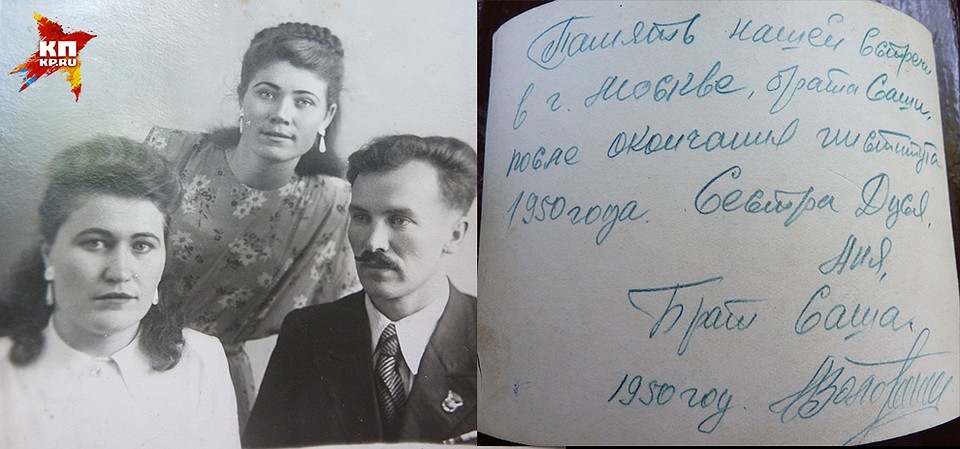 КП
KP.RU
Память нашей встречи
в г. Москве, брата Саши,
после окончания института
1950 года. Сестра Дуся,
Аня,
Брат Саша.
1950 год.